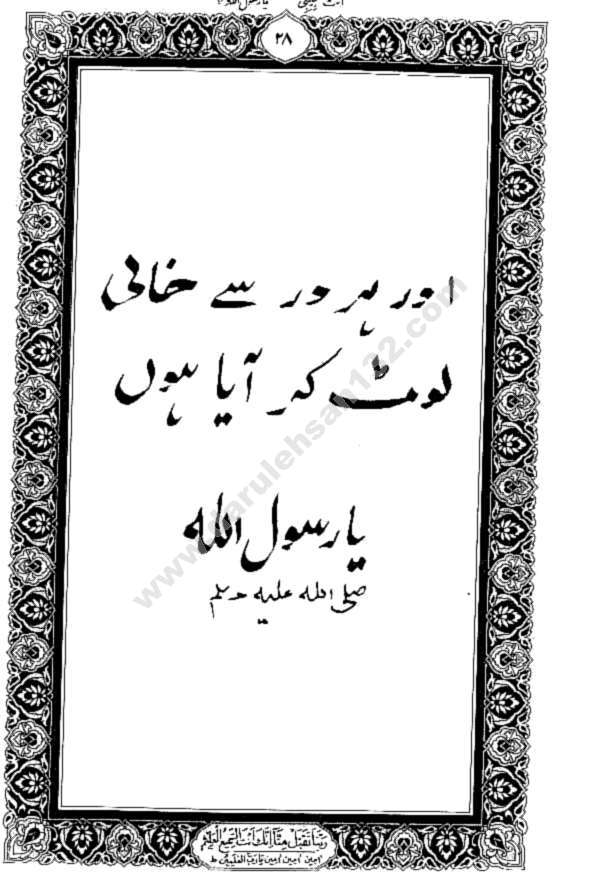 یا رسول اللہ
۲۸
اور ہر در سے خالی
لوٹ کر آیا ہوں
یا رسول اللہ
صلی اللہ علیہ وسلم
www.darulehsan122.com
ربنا تقبل منا انک انت السمیع العلیم
امین امین امین یا رب العلمین ط